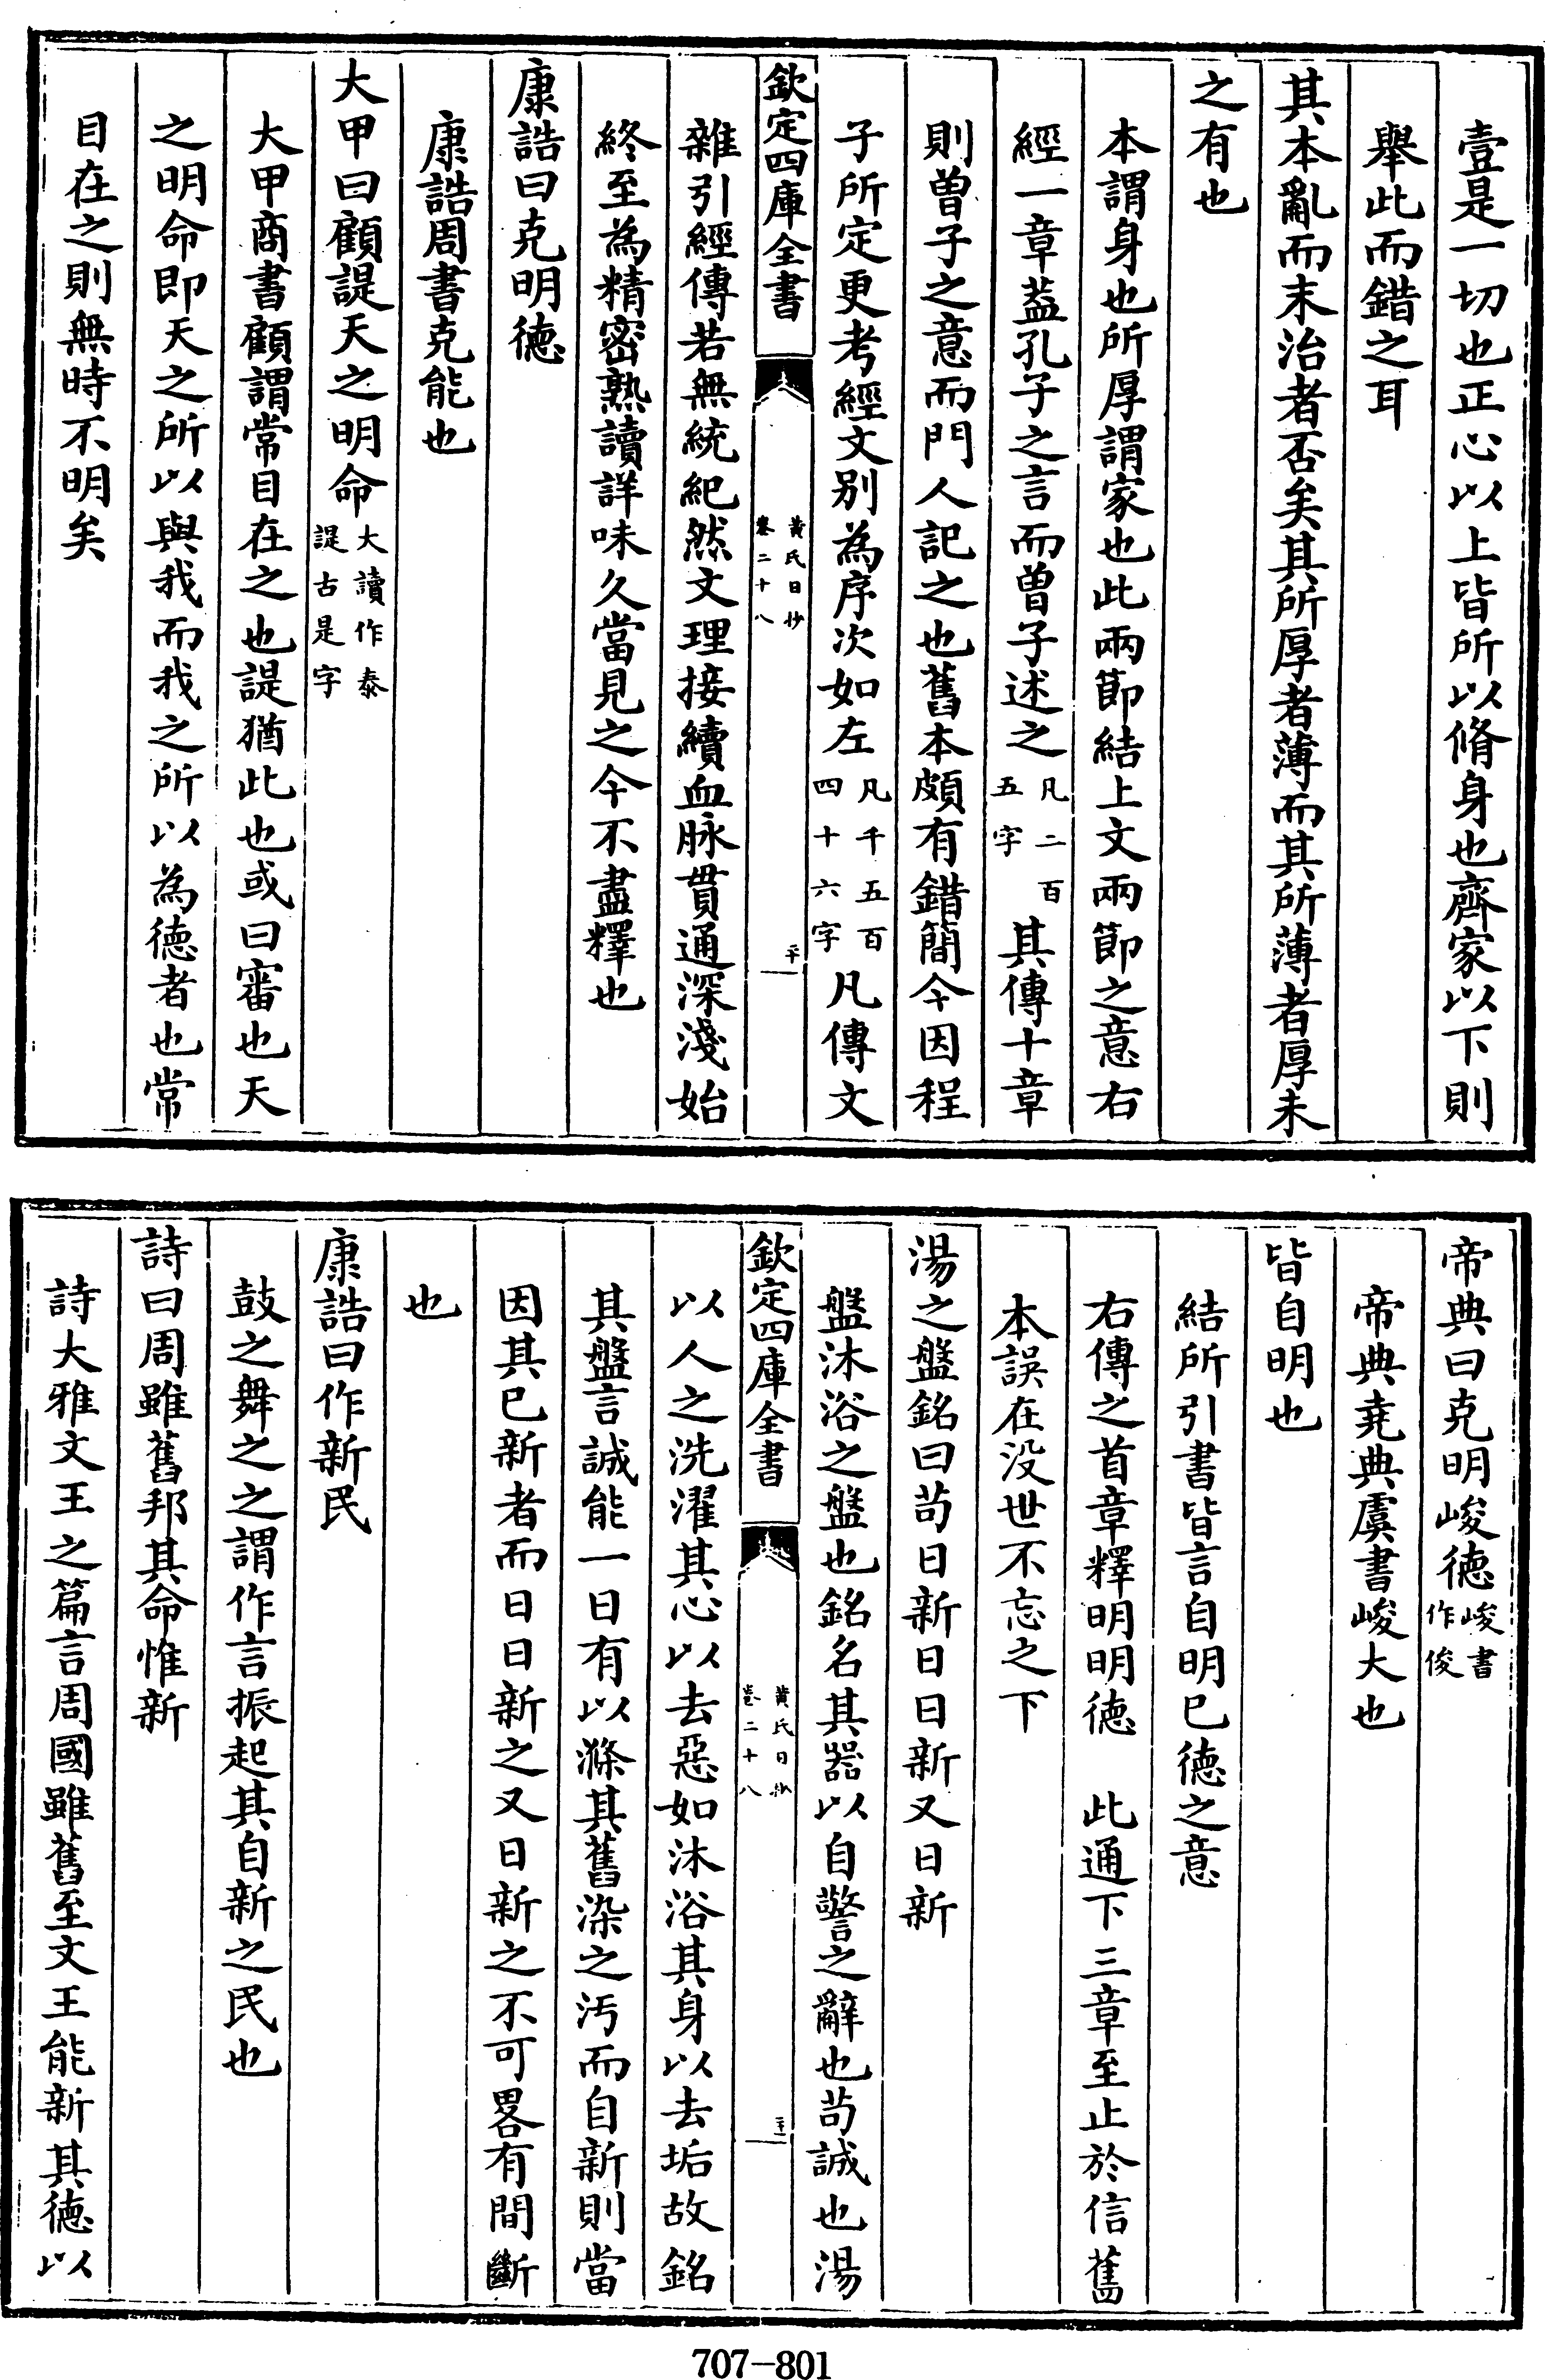 壹是一切也正心以上皆所以脩身也齊家以下則
舉此而錯之耳
其本亂而末治者否矣其所厚者薄而其所薄者厚未
之有也
本謂身也所厚謂家也此兩節結上文兩節之意右
經一章葢孔子之言而曽子述之凡二百五字其傳十章
則曽子之意而門人記之也舊本頗有錯簡今因程
子所定更考經文别為序次如左凡千五百四十六字凡傳文
欽定四庫全書
黄氏日抄
卷二十八
雜引經傳若無統紀然文理接續血脉貫通深淺始
終至為精密熟讀詳味久當見之今不盡釋也
康誥曰克明徳
康誥周書克能也
大甲曰顧諟天之明命大讀作泰諟古是字
大甲商書顧謂常目在之也諟猶此也或曰審也天
之明命即天之所以與我而我之所以為徳者也常
目在之則無時不明矣
帝典曰克明峻徳峻書作俊
帝典堯典虞書峻大也
皆自明也
結所引書皆言自明已徳之意
右傳之首章釋明明徳 此通下三章至止於信舊
本誤在没世不忘之下
湯之盤銘曰茍日新日日新又日新
盤沐浴之盤也銘名其器以自警之辭也茍誠也湯
欽定四庫全書
黄氏日抄
卷二十八
以人之洗濯其心以去惡如沐浴其身以去垢故銘
其盤言誠能一日有以滌其舊染之汚而自新則當
因其已新者而日日新之又日新之不可畧有間斷
也
康誥曰作新民
鼓之舞之之謂作言振起其自新之民也
詩曰周雖舊邦其命惟新
詩大雅文王之篇言周國雖舊至文王能新其徳以
707-801